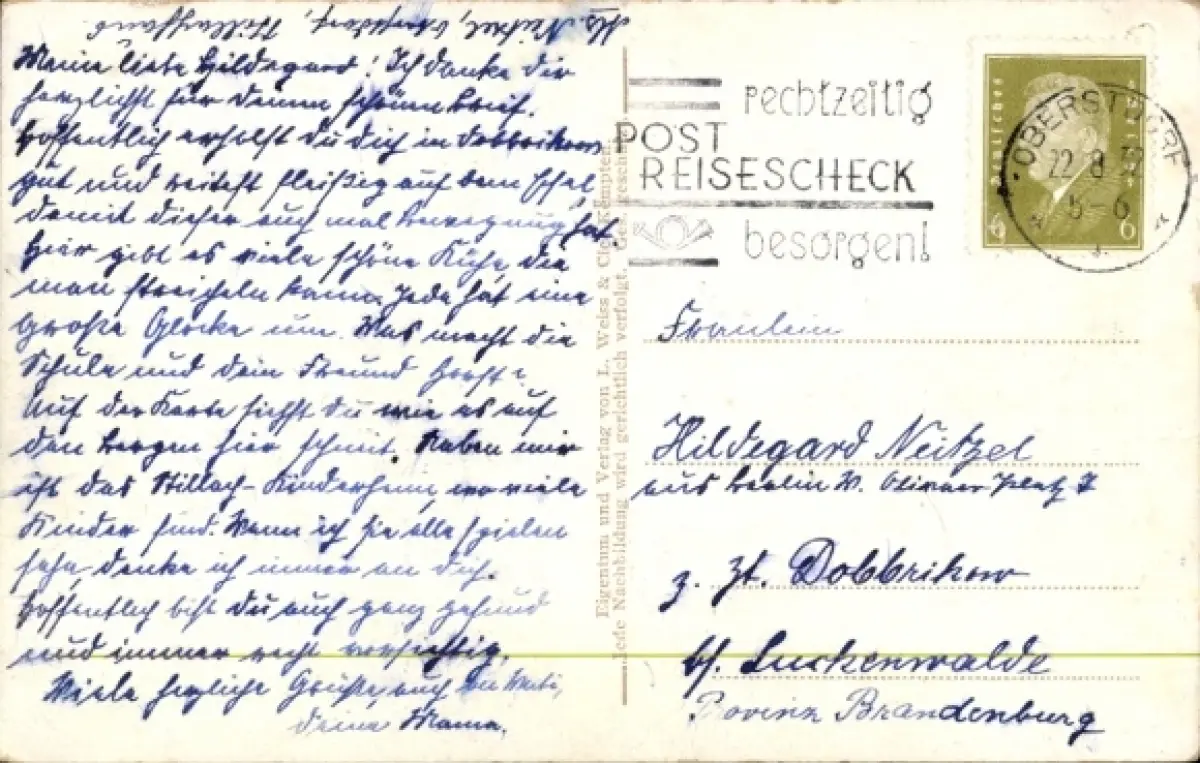 Meine liebe Hildegard! Ich danke dir
herzlichst für deinen schönen Brief.
Hoffentlich erholst du dich in Dobbrikow
gut und reitest fleißig auf dem Esel,
damit dieser auch mal Bewegung hat
Hier gibt es viele schöne Kühe, die
man streicheln kann. Jede hat eine
große Glocke um. Was macht die
Schule und dein Freund Horst?
Auf der Karte siehst du wie es auf
den Bergen hier schneit. Neben mir
ist das Stillach-Kinderheim, wo viele
Kinder sind. Wenn ich sie alle spielen
sehe, denke ich immer an dich.
Hoffentlich bist du auch ganz gesund
und immer recht vorsichtig.
Viele herzliche Grüße, auch an
deine Mama.
Eigentum und Verlag von L. Weiss & Cie. Kempten.
Jede Nachbildung wird gerichtlich verfolgt. Ges. gesch.
rechtzeitig
POST
REISESCHECK
besorgen!
Deutsches Reich
6 6
OBERSTDORF
22.8.32
5-6
Fräulein
Hildegard Neitzel
aus Berlin W. Olivaer Platz 7
z. Zt. Dobbrikow
b/. Luckenwalde
Provinz Brandenburg